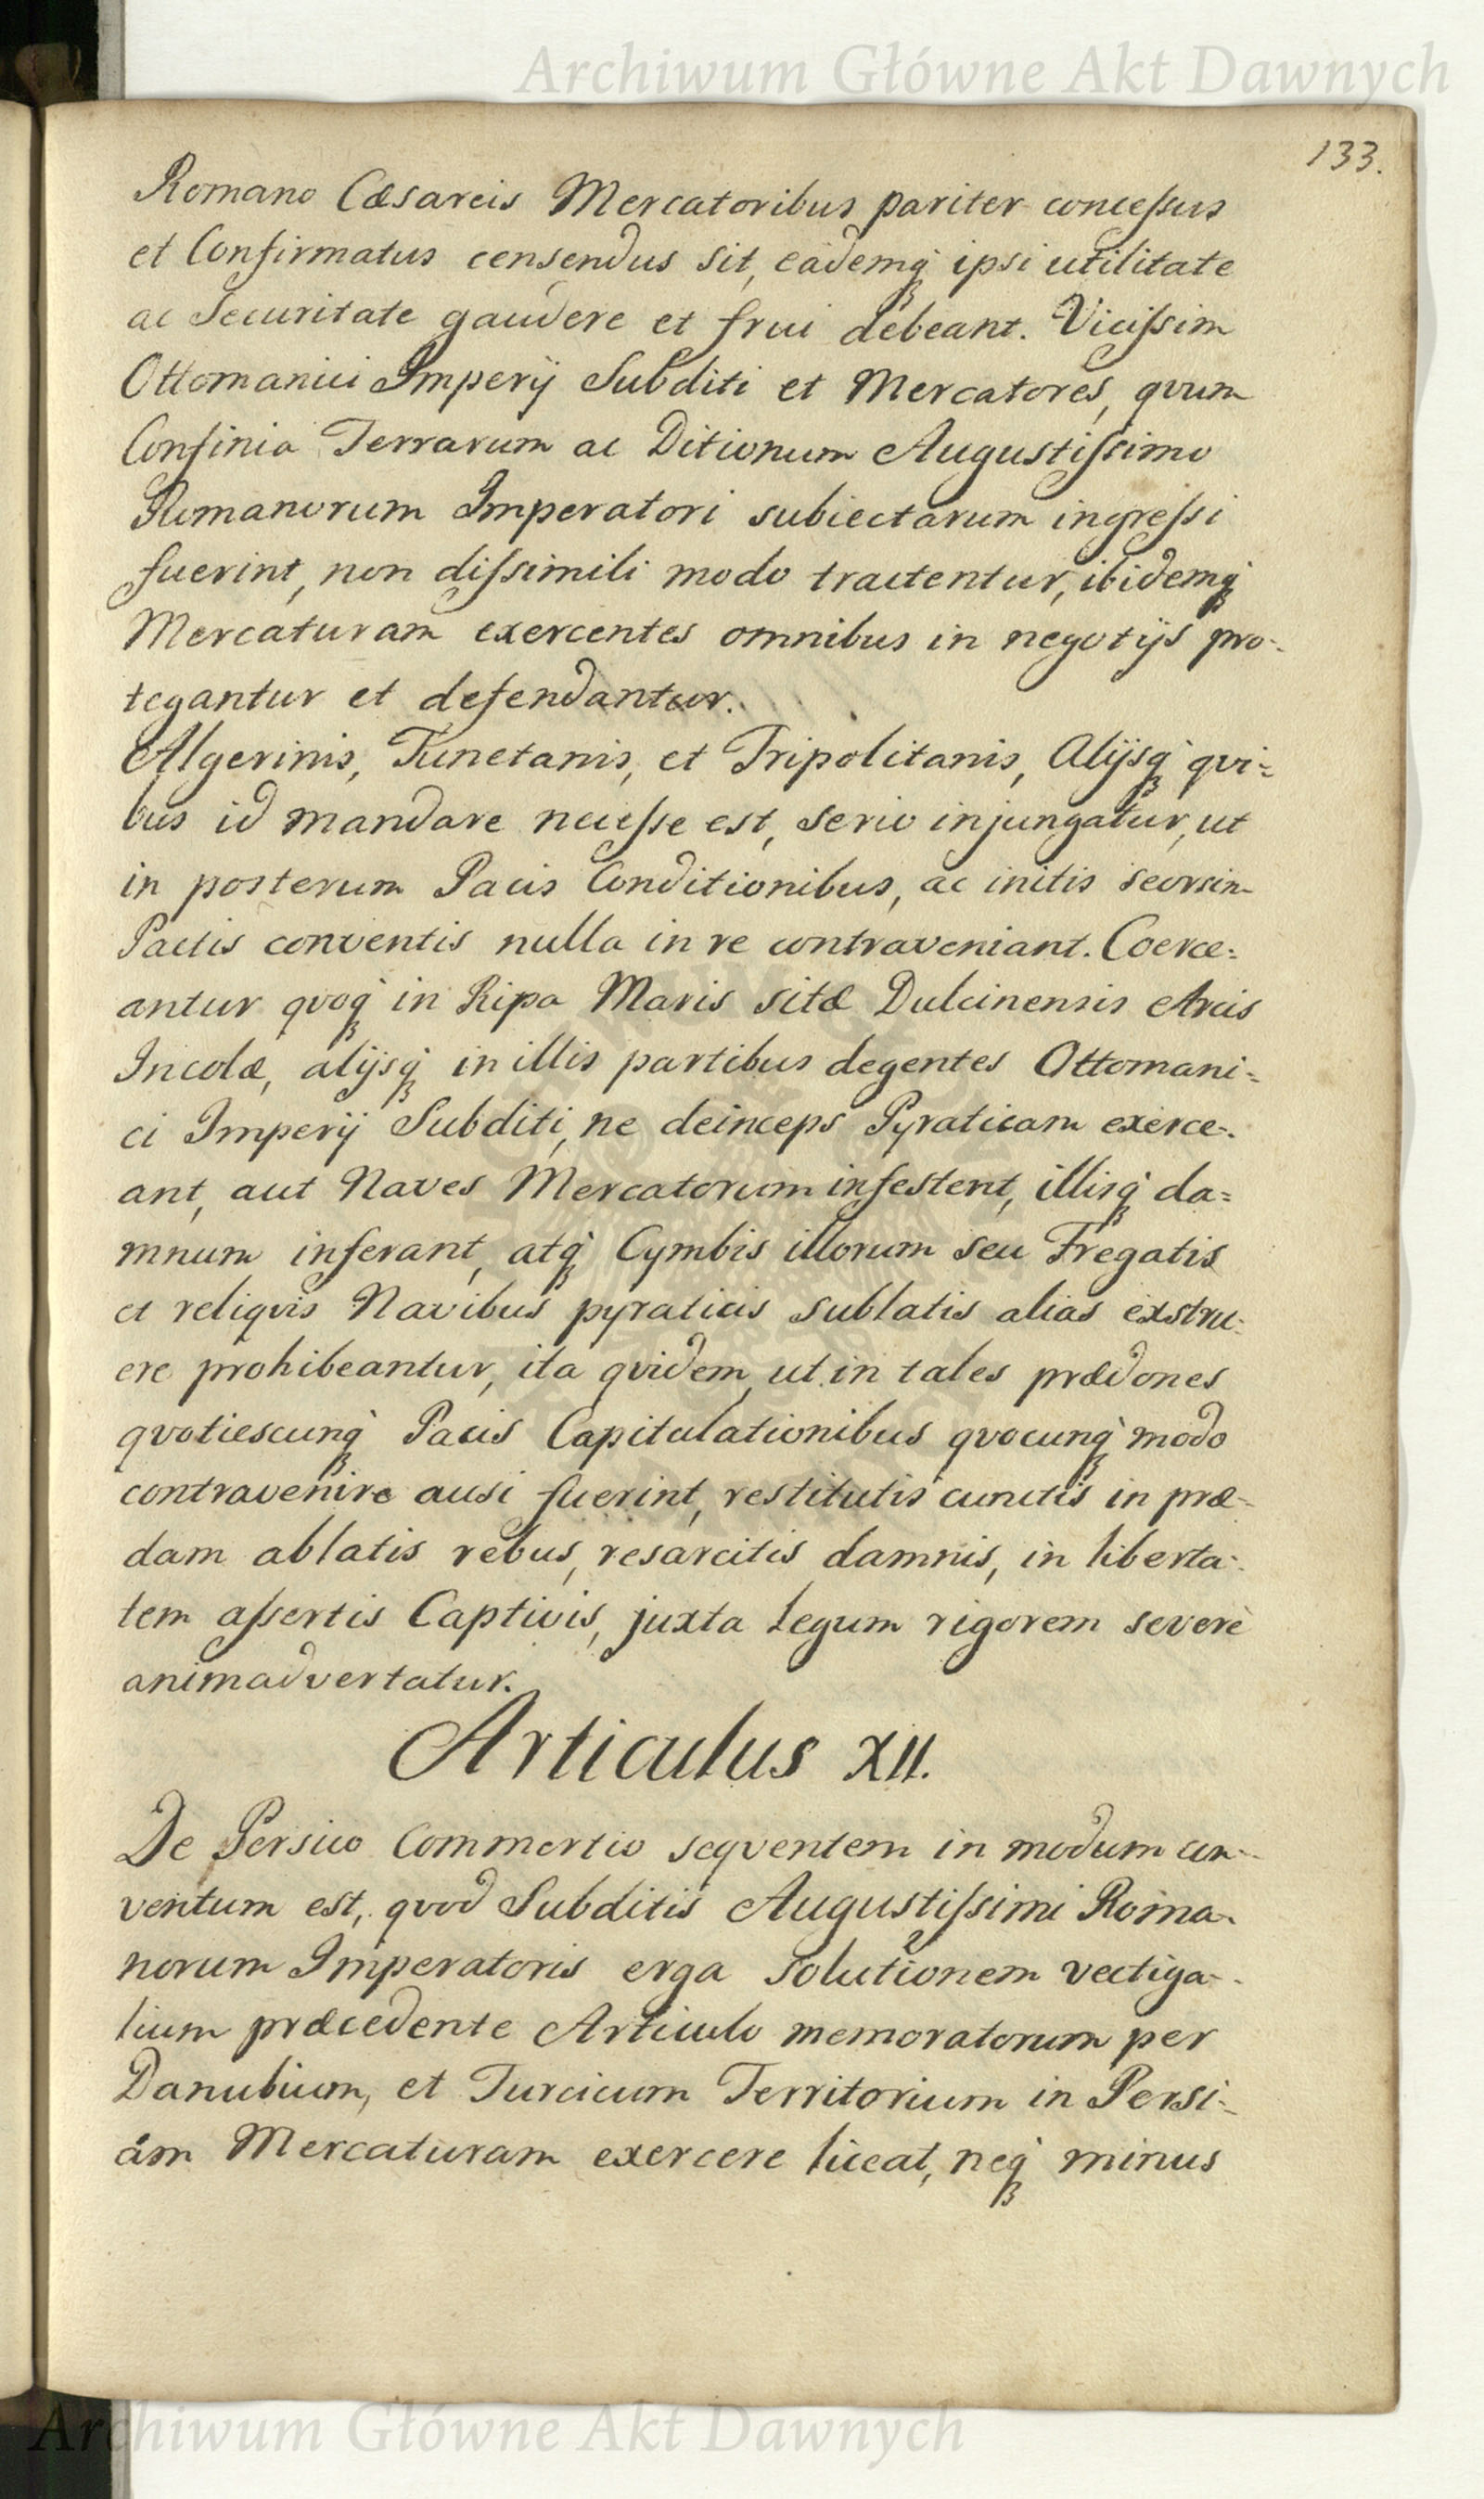 Archiwum Główne Akt Dawnych
133.
Romano Cæsareis Mercatoribus pariter concessus
et Confirmatus censendus sit, eâdemq́ ipsi utilitate
ac Securitate gaudere et frui debeant. Vicissim
Ottomanici Imperij Subditi et Mercatores, qvum
Confinia Terrarum ac Ditionum Augustissimo
Romanorum Imperatori subiectarum ingressi
fuerint, non dissimili modo tractentur, ibidemq́
Mercaturam exercentes omnibus in negotijs pro-
tegantur et defendantur.
Algerinis, Tunetanis, et Tripolitanis, Alijsq́ qvi=
bus id mandare necesse est, serio injungatur, ut
in posterum Pacis Conditionibus, ac initis seorsim
Pactis conventis nulla in re contraveniant. Coerce=
antur qvoq́ in Ripa Maris sitæ Dulcinensis Arcis
Incolæ, alijsq́ in illis partibus degentes Ottomani=
ci Imperij Subditi, ne deinceps Pyraticam exerce-
ant, aut Naves Mercatorum infestent, illisq́ da=
mnum inferant, atq́ Cymbis illorum seu Fregatis
et reliqvis Navibus pyraticis sublatis alias exstru-
ere prohibeantur, ita qvidem, ut in tales prædones
qvotiescunq́ Pacis Capitulationibus qvocunq́ modo
contravenire ausi fuerint, restitutis cunctis in præ-
dam ablatis rebus, resarcitis damnis, in liberta-
tem assertis Captivis, juxta Legum rigorem severè
animadvertatur.
Articulus XII.
De Persico Commertio seqventem in modum con-
ventum est, qvod Subditis Augustissimi Roma-
norum Imperatoris erga solutionem vectiga-
lium præcedente Articulo memoratorum per
Danubium, et Turcicum Territorium in Persi-
am Mercaturam exercere liceat, neq́ minus
Archiwum Główne Akt Dawnych